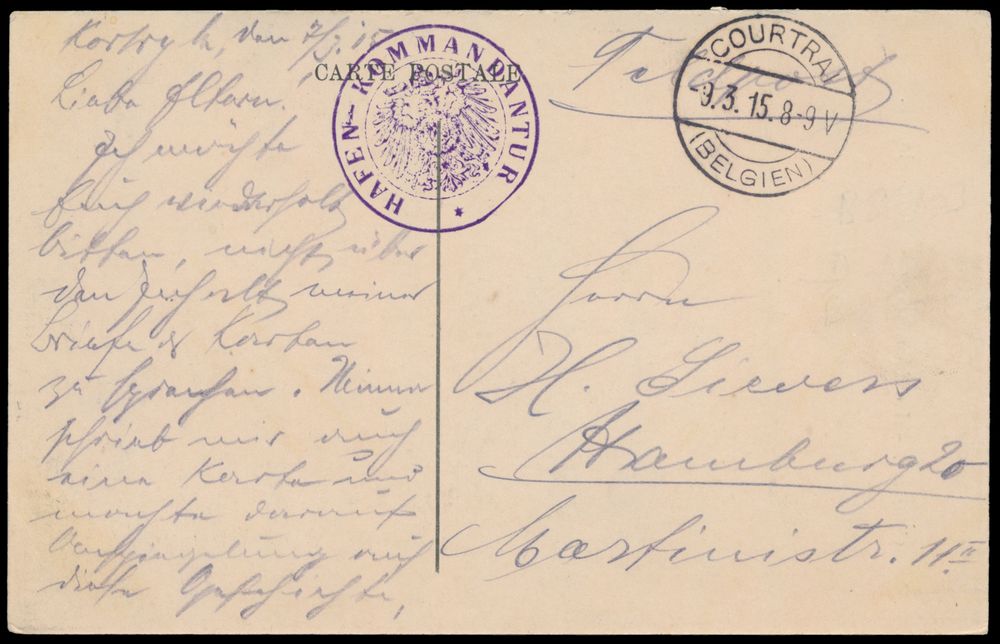 Kortryk, den 7/3.15
Liebe Eltern!
Ich möchte
Euch wiederholt
bitten, nicht über
den Inhalt meiner
Briefe & Karten
zu sprechen.
schrieb mir auch
eine Karte und
machte darauf
auf
diese Geschichte,
CARTE POSTALE
HAFEN-KOMMANDANTUR
Feldpost
COURTRAI
9.3.15.8-9V
(BELGIEN)
Herrn
H. Sievers
Hamburg 20
Martinistr. 11 II